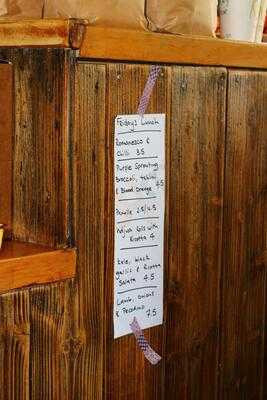 Friday's Lunch
Romanesco &
chilli 3.5
Purple Sprouting
Broccoli, tahini
& Blood Orange 4.5
2.5/4.5
with
Ricotta 4
Kale, black
garlic & Ricotta
Salata 4.5
Lamb, onions
& Pecorino 7.5